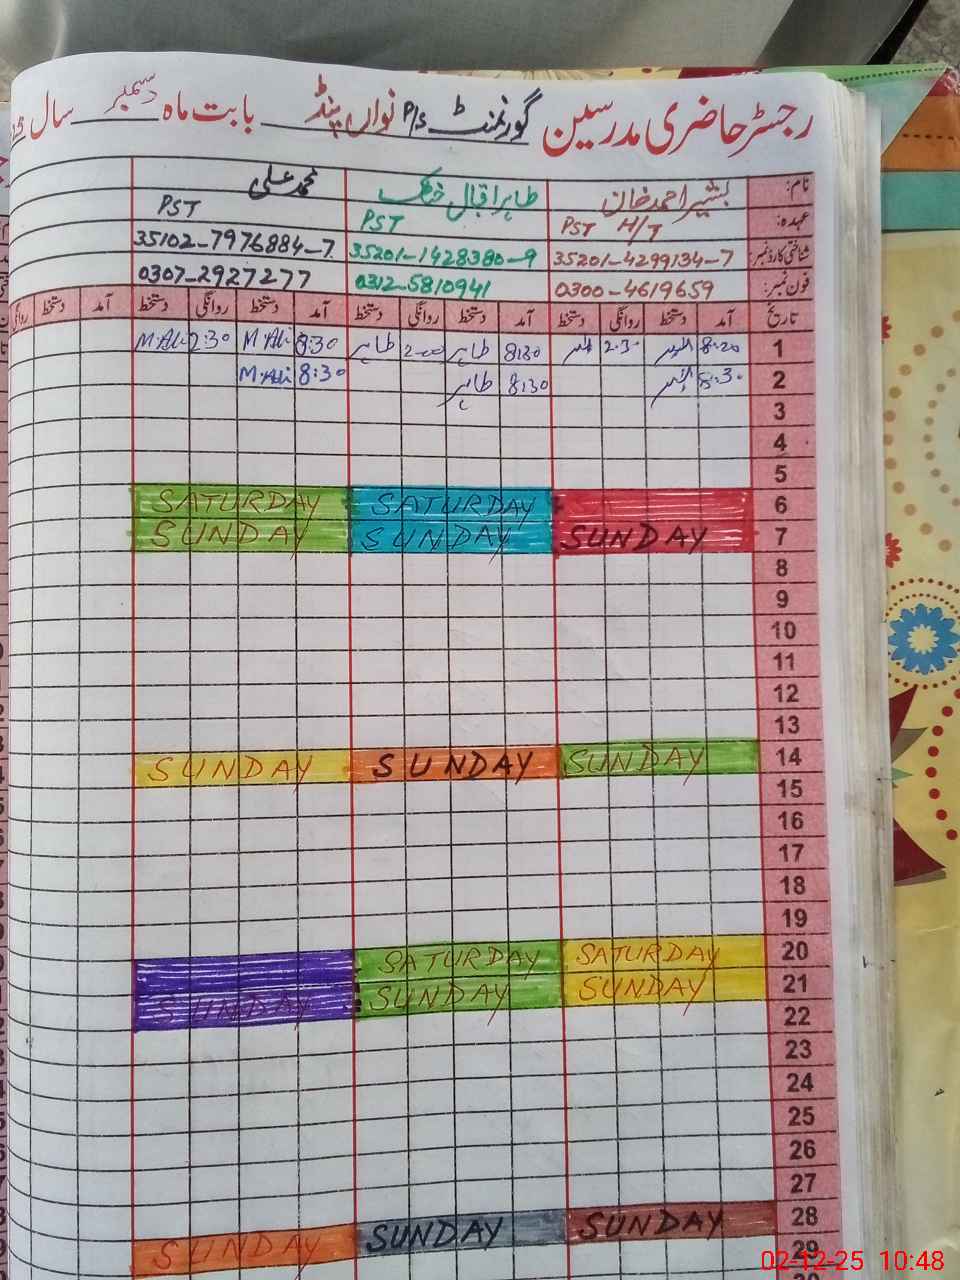 رجسٹر حاضری مدرسین گورنمنٹ P/S نواں پنڈ بابت ماہ دسمبر سال
نام: بشیر احمد خان طاہر اقبال خٹک محمد علی
عہدہ: PST H/T PST PST
شناختی کارڈ نمبر: 35201-4299134-7 35201-1428380-9 35102-7976884-7
فون نمبر: 0300-4619659 0312-5810941 0307-2927277
تاریخ آمد دستخط روانگی دستخط آمد دستخط روانگی دستخط آمد دستخط روانگی دستخط آمد دستخط روانگی
1 8:20 2:30 8:30 طاہر 2:00 طاہر 8:30 M.Ali 2:30 M.Ali
2 8:30 8:30 طاہر 8:30 M.Ali
3
4
5
6 SATURDAY SATURDAY
7 SUNDAY SUNDAY SUNDAY
8
9
10
11
12
13
14 SUNDAY SUNDAY SUNDAY
15
16
17
18
19
20 SATURDAY SATURDAY
21 SUNDAY SUNDAY SUNDAY
22
23
24
25
26
27
28 SUNDAY SUNDAY SUNDAY
29
02-12-25 10:48